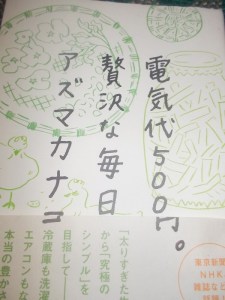 電気代500円。
贅沢な毎日
アズマカナコ
「太りすぎた
から「究極の
シンプル」を
目指して――
冷蔵庫も洗濯
エアコンもな
本当の豊かさ
東京新聞
NHK
雑誌など